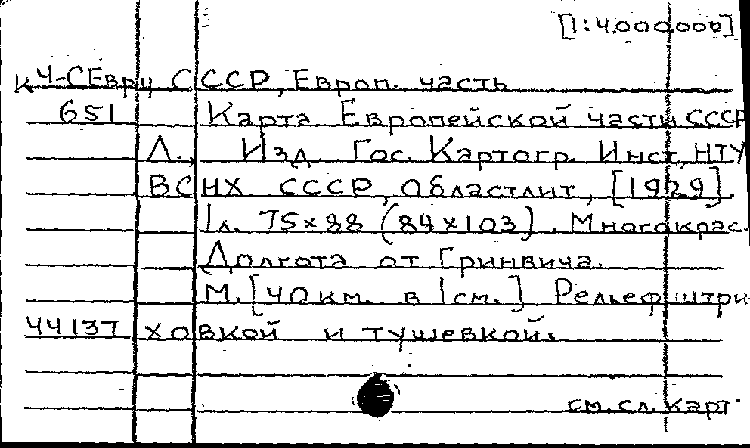 [1:4.000.000]
К Ч-СЕврц СССР, Европ. часть
651 Карта Европейской части СССР
Л., Изд. Гос. Картогр. Инст. НТУ
ВСНХ СССР, Областлит, [1929].
1 л. 75×88 (84×103). Многокрас.
Долгота от Гринвича.
М. [40 км. в 1 см.] Рельеф штри
44137 ховкой и тушевкой.
см. сл. карт.